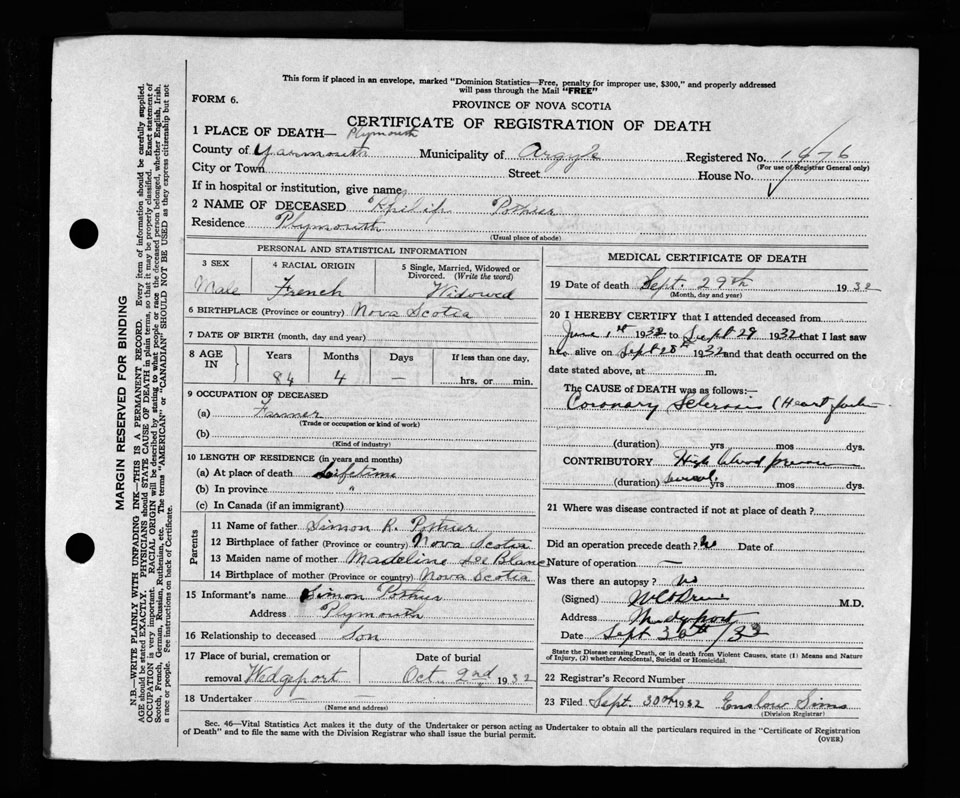 This form if placed in an envelope, marked "Dominion Statistics—Free, penalty for improper use, $300," and properly addressed
will pass through the Mail "FREE"
FORM 6.
PROVINCE OF NOVA SCOTIA
CERTIFICATE OF REGISTRATION OF DEATH
1 PLACE OF DEATH— Plymouth
County of Yarmouth Municipality of Argyle Registered No. 1476
(For use of Registrar General only)
City or Town Street House No.
If in hospital or institution, give name
2 NAME OF DECEASED Philip Pothier
Residence Plymouth
(Usual place of abode)
PERSONAL AND STATISTICAL INFORMATION
3 SEX
Male
4 RACIAL ORIGIN
French
5 Single, Married, Widowed or
Divorced. (Write the word)
Widowed
6 BIRTHPLACE (Province or country) Nova Scotia
7 DATE OF BIRTH (month, day and year)
8 AGE IN Years Months Days If less than one day,
84 4 — hrs. or min.
9 OCCUPATION OF DECEASED
(a) Farmer
(Trade or occupation or kind of work)
(b)
(Kind of industry)
10 LENGTH OF RESIDENCE (in years and months)
(a) At place of death Lifetime
(b) In province "
(c) In Canada (if an immigrant)
Parents
11 Name of father Simon R. Pothier
12 Birthplace of father (Province or country) Nova Scotia
13 Maiden name of mother Madeline Le Blanc
14 Birthplace of mother (Province or country) Nova Scotia
15 Informant's name Simon Pothier
Address Plymouth
16 Relationship to deceased Son
17 Place of burial, cremation or Date of burial
removal Wedgeport Oct. 2nd 1932
18 Undertaker — —
(Name and address)
MEDICAL CERTIFICATE OF DEATH
19 Date of death Sept. 29th 1932
(Month, day and year)
20 I HEREBY CERTIFY that I attended deceased from
June 1st 1932 to Sept 29 1932 that I last saw
h alive on Sept 28th 1932 and that death occurred on the
date stated above, at m.
The CAUSE of DEATH was as follows:—
Coronary Sclerosis (Heart
(duration) yrs mos dys.
CONTRIBUTORY High blood pressure
(duration) several yrs mos dys.
21 Where was disease contracted if not at place of death?
Did an operation precede death? No Date of
Nature of operation —
Was there an autopsy? No
(Signed) M.D.
Address
Date Sept 30th/32
State the Disease causing Death, or in death from Violent Causes, state (1) Means and Nature
of Injury, (2) whether Accidental, Suicidal or Homicidal.
22 Registrar's Record Number
23 Filed Sept. 30th 1932 Enslow Sims
(Division Registrar)
Sec. 46—Vital Statistics Act makes it the duty of the Undertaker or person acting as Undertaker to obtain all the particulars required in the "Certificate of Registration
of Death" and to file the same with the Division Registrar who shall issue the burial permit.
(OVER)
MARGIN RESERVED FOR BINDING
N.B.—WRITE PLAINLY WITH UNFADING INK—THIS IS A PERMANENT RECORD. Every item of information should be carefully supplied.
AGE should be stated EXACTLY. PHYSICIANS should STATE CAUSE OF DEATH in plain terms, so that it may be properly classified. Exact statement of
OCCUPATION is very important. RACIAL ORIGIN will be described by stating to what people or race the deceased person belonged, whether English, Irish,
Scotch, French, German, Russian, Ruthenian, etc. The terms "AMERICAN" or "CANADIAN" SHOULD NOT BE USED as they express citizenship but not
a race or people. See instructions on back of Certificate.